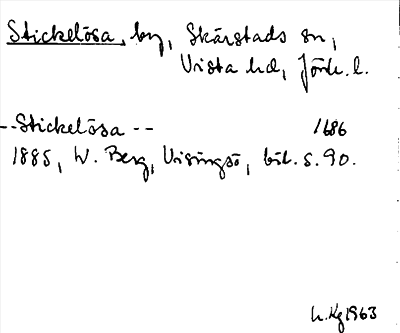 Stickelösa, by, Skärstads sn,
Vista hd, Jönk. l.
--Stickelösa -- 1686
1885, W. Berg, Visingsö, bil. s. 90.
h.Kg 1963